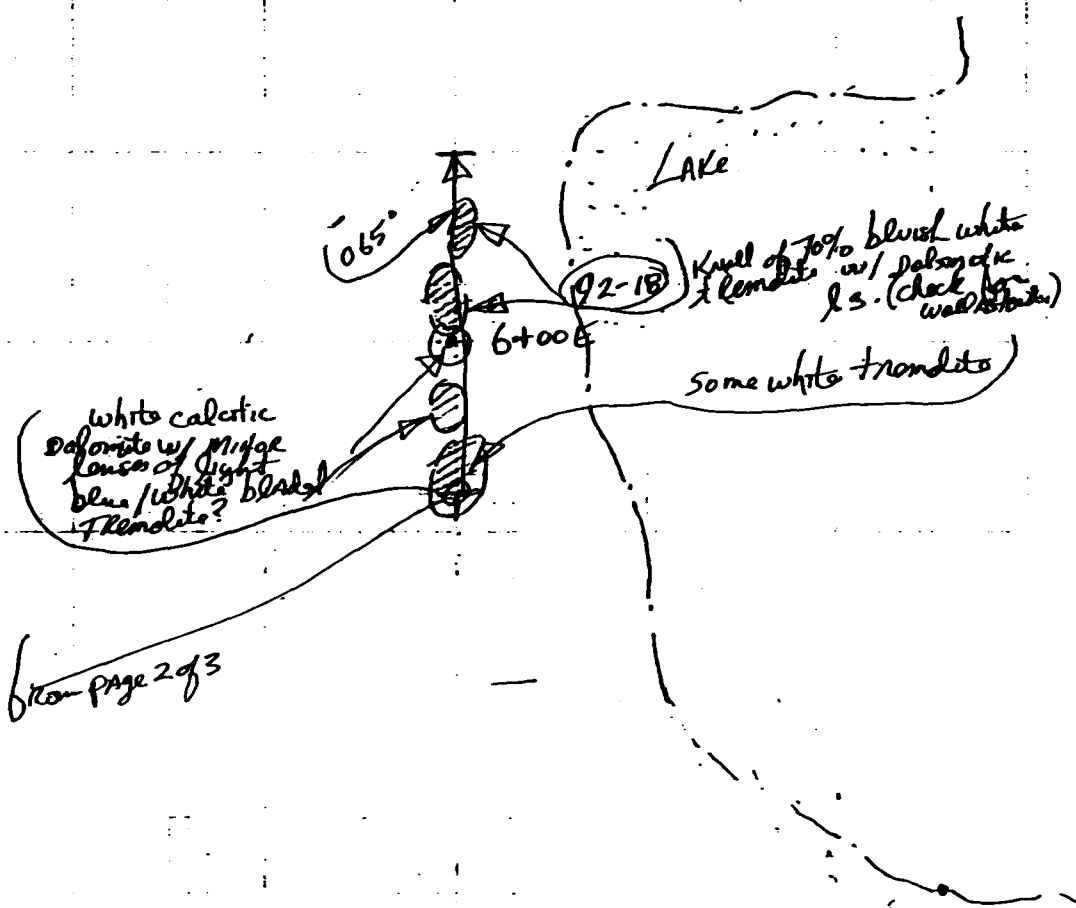 LAKE
065°
92-18
Knoll of 70% bluish white
tremolite w/ Dolomitic
ls. (check for
wollastonite)
6+00E
some white tremolite
white calcitic
Dolomite w/ Minor
lenses of light
blue/white bladed
TRemolite?
from PAge 2 of 3